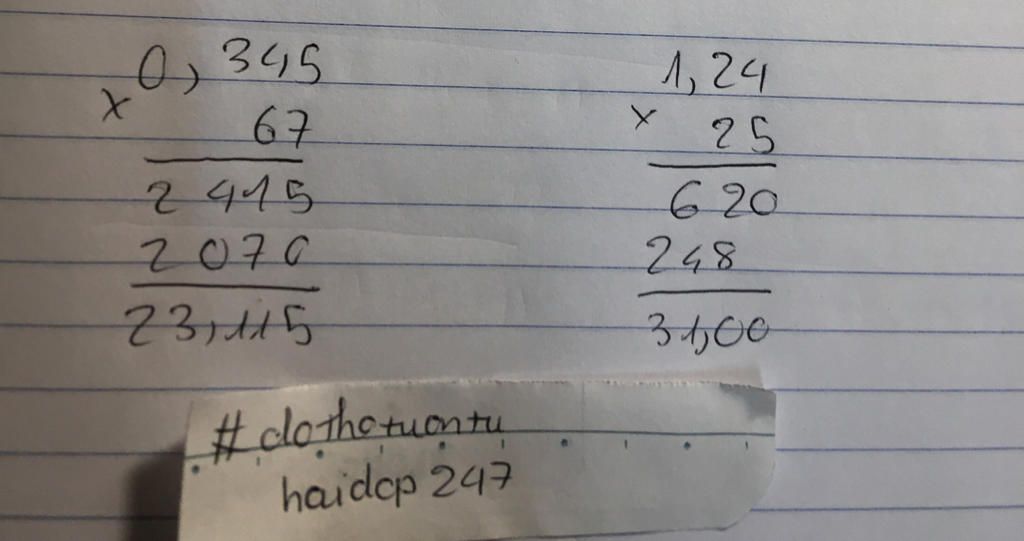 0, 345
x
67
2 415
2 070
23,115
1, 24
x
25
620
248
31,00
#dothotuantu
haidcp 247